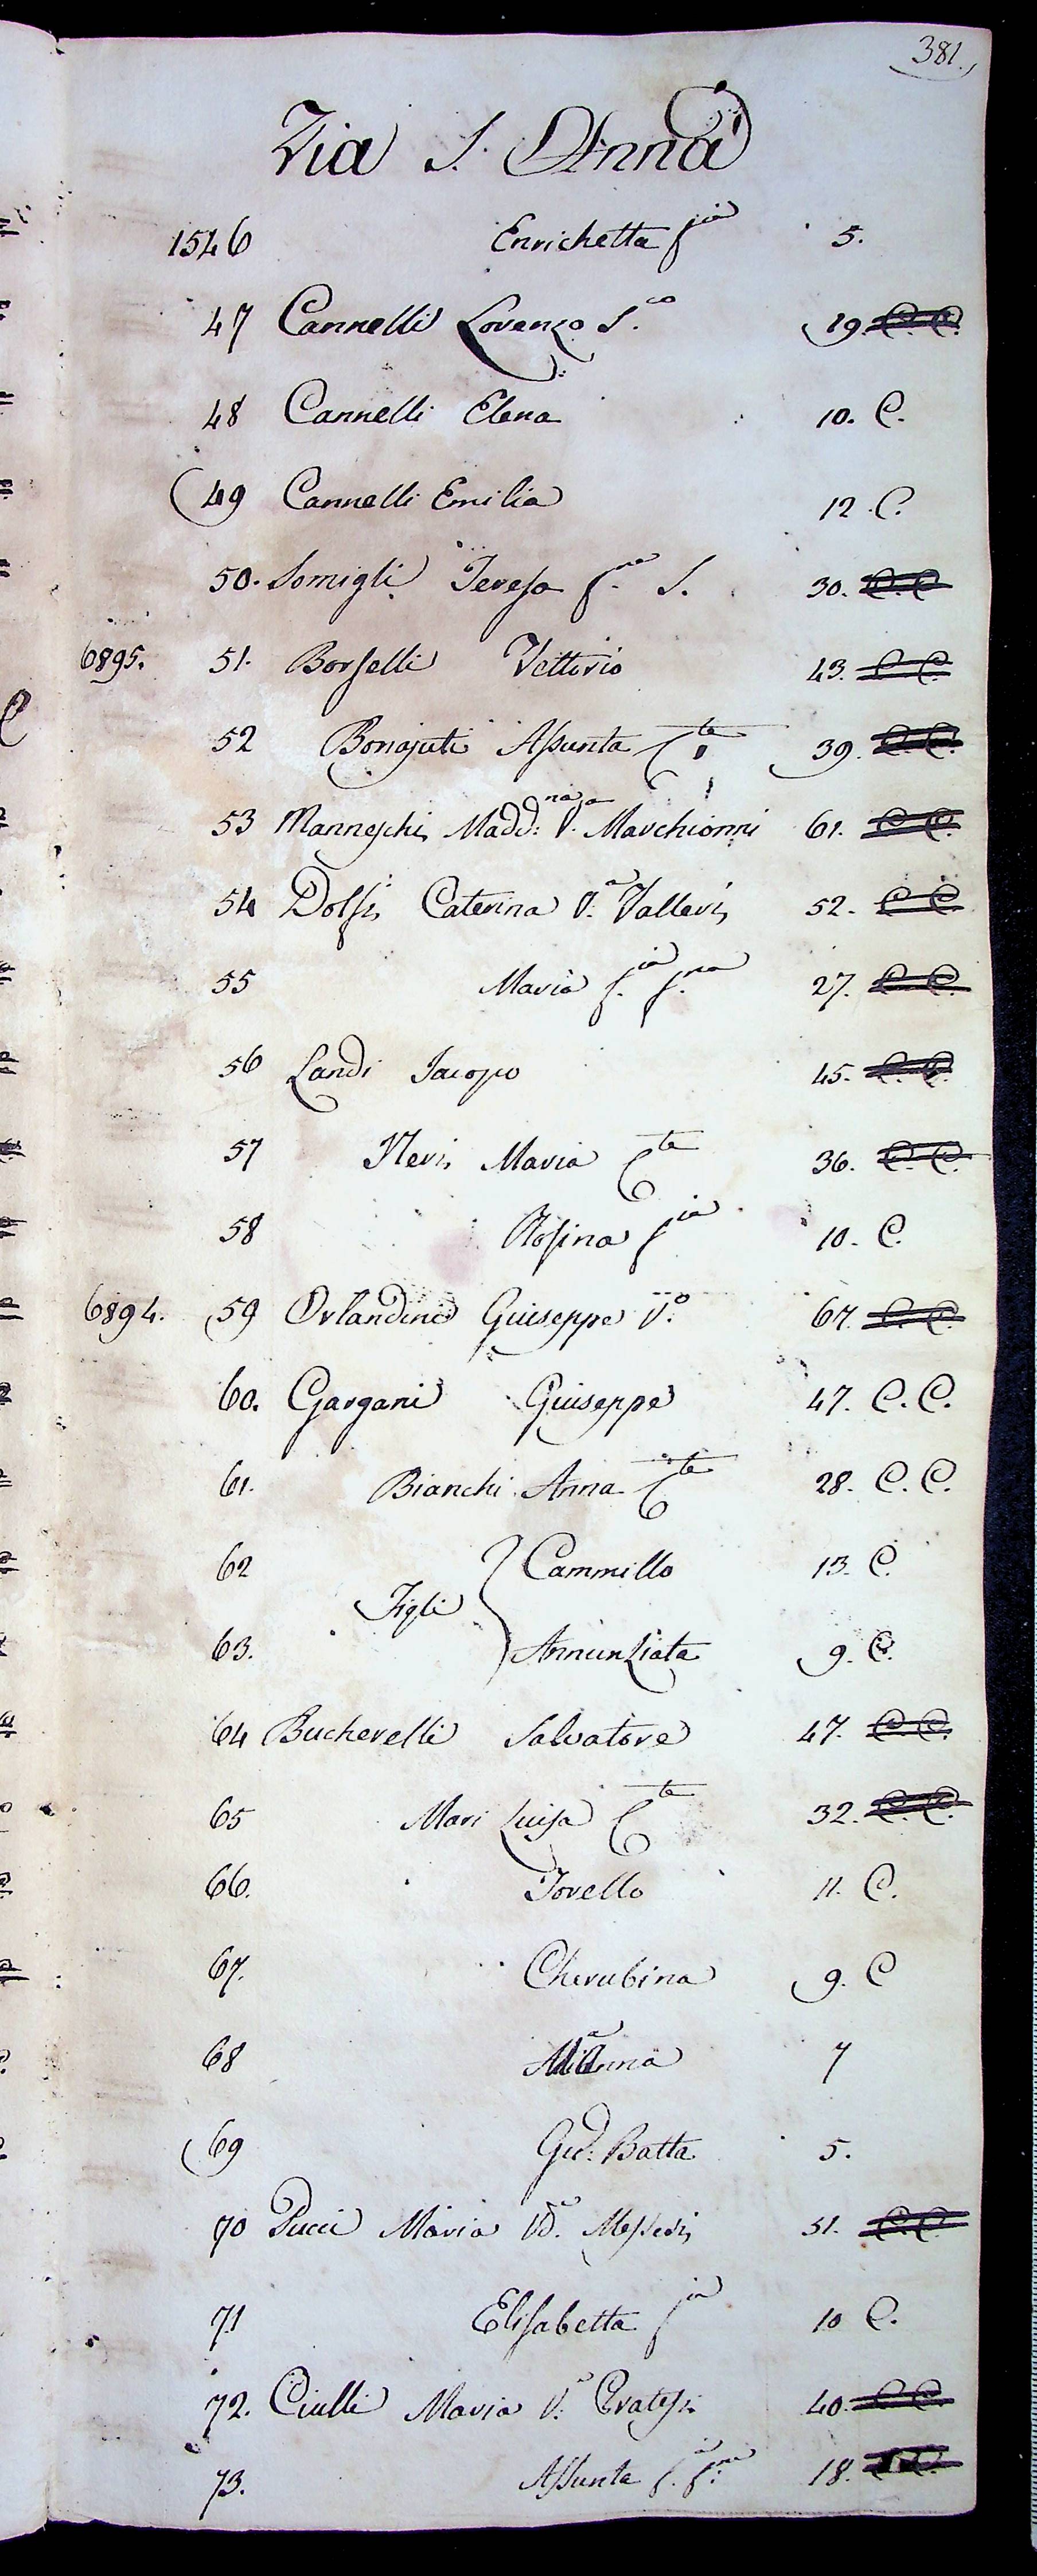 381.
Via S. Anna
1546 Enrichetta f.ia 5.
47 Cannelli Lorenzo S.co 19. C. C.
48 Cannelli Elena 10. C.
49 Cannelli Emilia 12. C.
50. Somigli Teresa f.na S. 30. C. C
6895. 51. Borselli Vettorio 43. C C.
52 Bonajuti Assunta C.te 39. C. C.
53 Manneschi Madd:na V.a Marchionni 61. C C.
54 Dolfi Caterina V.a Valleri 52. C C
55 Maria f.ia f.na 27. C C.
56 Landi Jacopo 45. C. C.
57 Neri Maria C.te 36. C. C.
58 Rosina f.ia 10. C.
6894. 59 Orlandini Giuseppe V.o 67. C. C.
60. Gargani Giuseppe 47. C. C.
61. Bianchi Anna C.te 28. C. C.
62 Cammillo 13. C.
Figli
63. Annunziata 9. C.
64 Bucherelli Salvatore 47. C. C.
65 Mari Luisa C.te 32. C. C.
66. Torello 11. C.
67. Cherubina 9. C
68 M.a Anna 7
69 Gio: Batta 5.
70 Pucci Maria Vd.a Messeri 51. C. C.
71 Elisabetta f.ia 10 C.
72. Ciulli Maria V.a Pratesi 40. C C.
73. Assunta f.a f.na 18. C. C.